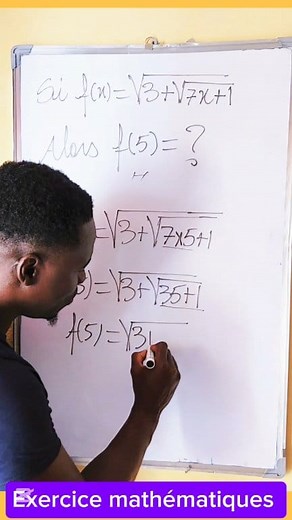 Si f(x)=√3+√7x+1
Alors f(5)=?
=√3+√7x5+1
)=√3+√35+1
f(5)=√3
Exercice mathématiques